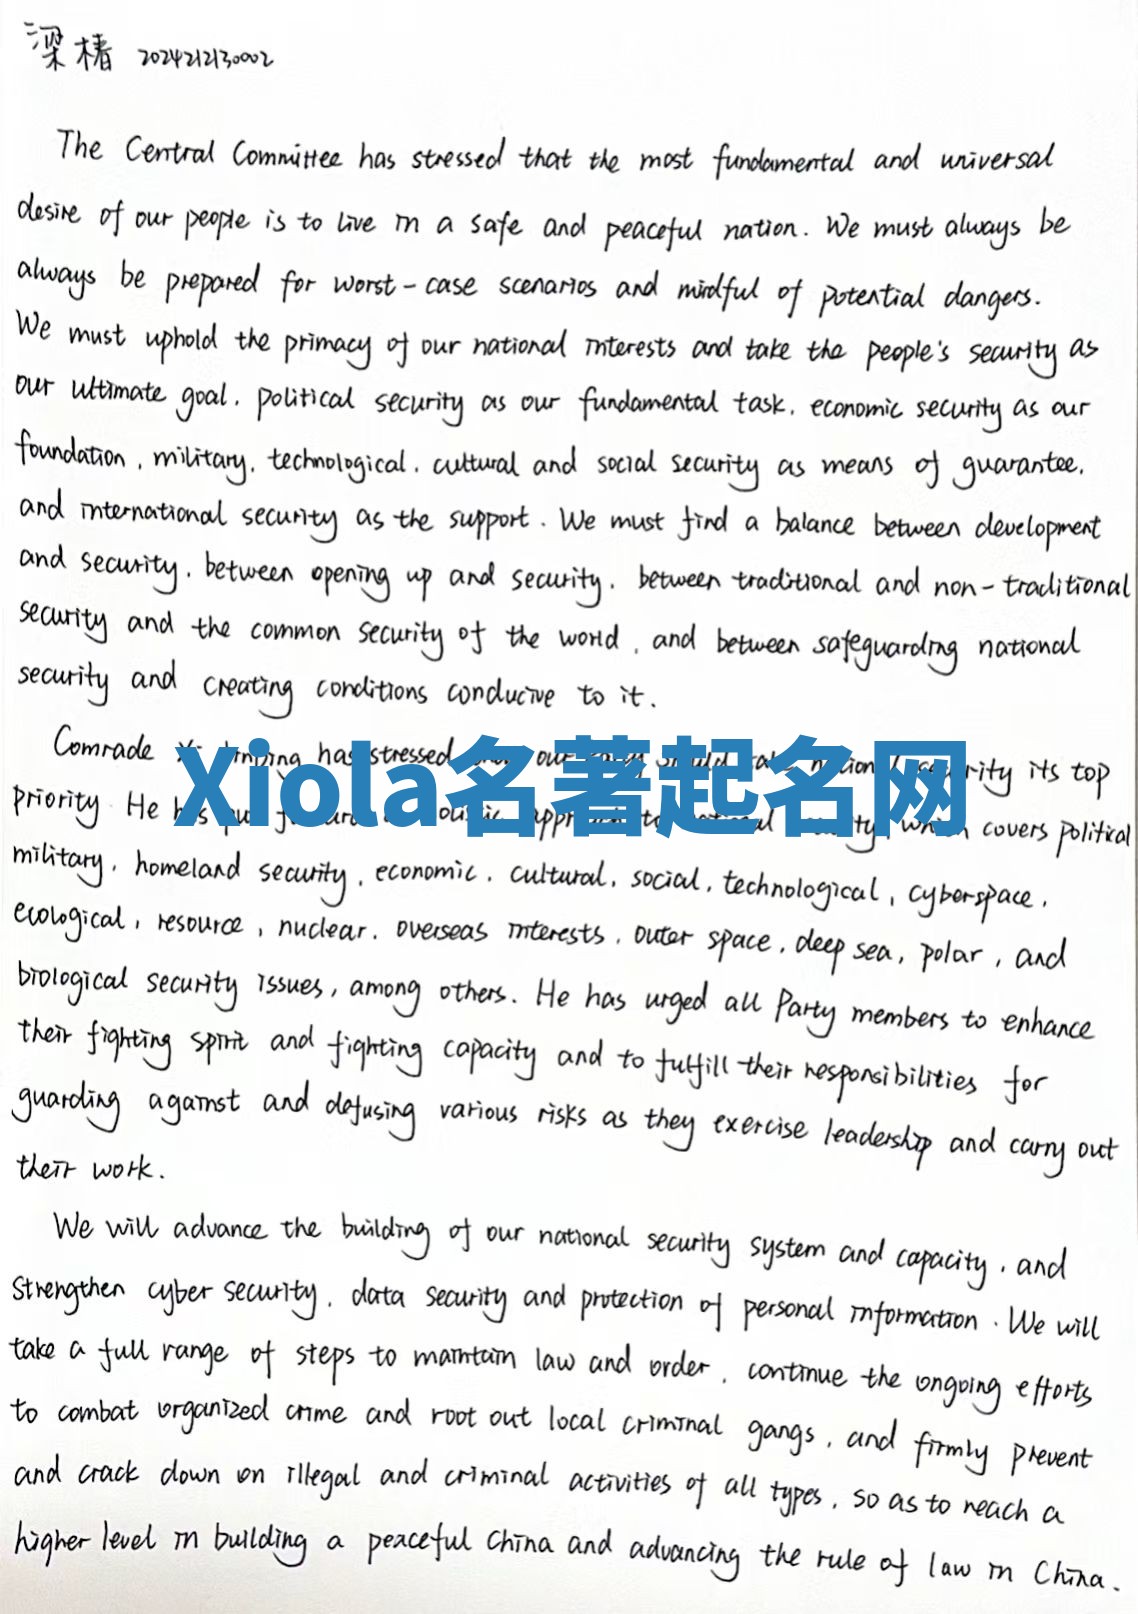 梁椿 2024212130002
The Central Committee has stressed that the most fundamental and universal
desire of our people is to live in a safe and peaceful nation. We must always be
always be prepared for worst-case scenarios and mindful of potential dangers.
We must uphold the primacy of our national interests and take the people's security as
our ultimate goal, political security as our fundamental task, economic security as our
foundation, military, technological, cultural and social security as means of guarantee,
and international security as the support. We must find a balance between development
and security, between opening up and security, between traditional and non-traditional
security and the common security of the world, and between safeguarding national
security and creating conditions conducive to it.
Comrade has stressed our its top
Xiola名著起名网
priority. He has covers political
military, homeland security, economic, cultural, social, technological, cyberspace,
ecological, resource, nuclear, overseas interests, outer space, deep sea, polar, and
biological security issues, among others. He has urged all Party members to enhance
their fighting spirit and fighting capacity and to fulfill their responsibilities for
guarding against and defusing various risks as they exercise leadership and carry out
their work.
We will advance the building of our national security system and capacity, and
strengthen cyber security, data security and protection of personal information. We will
take a full range of steps to maintain law and order, continue the ongoing efforts
to combat organized crime and root out local criminal gangs, and firmly prevent
and crack down on illegal and criminal activities of all types, so as to reach a
higher level in building a peaceful China and advancing the rule of law in China.